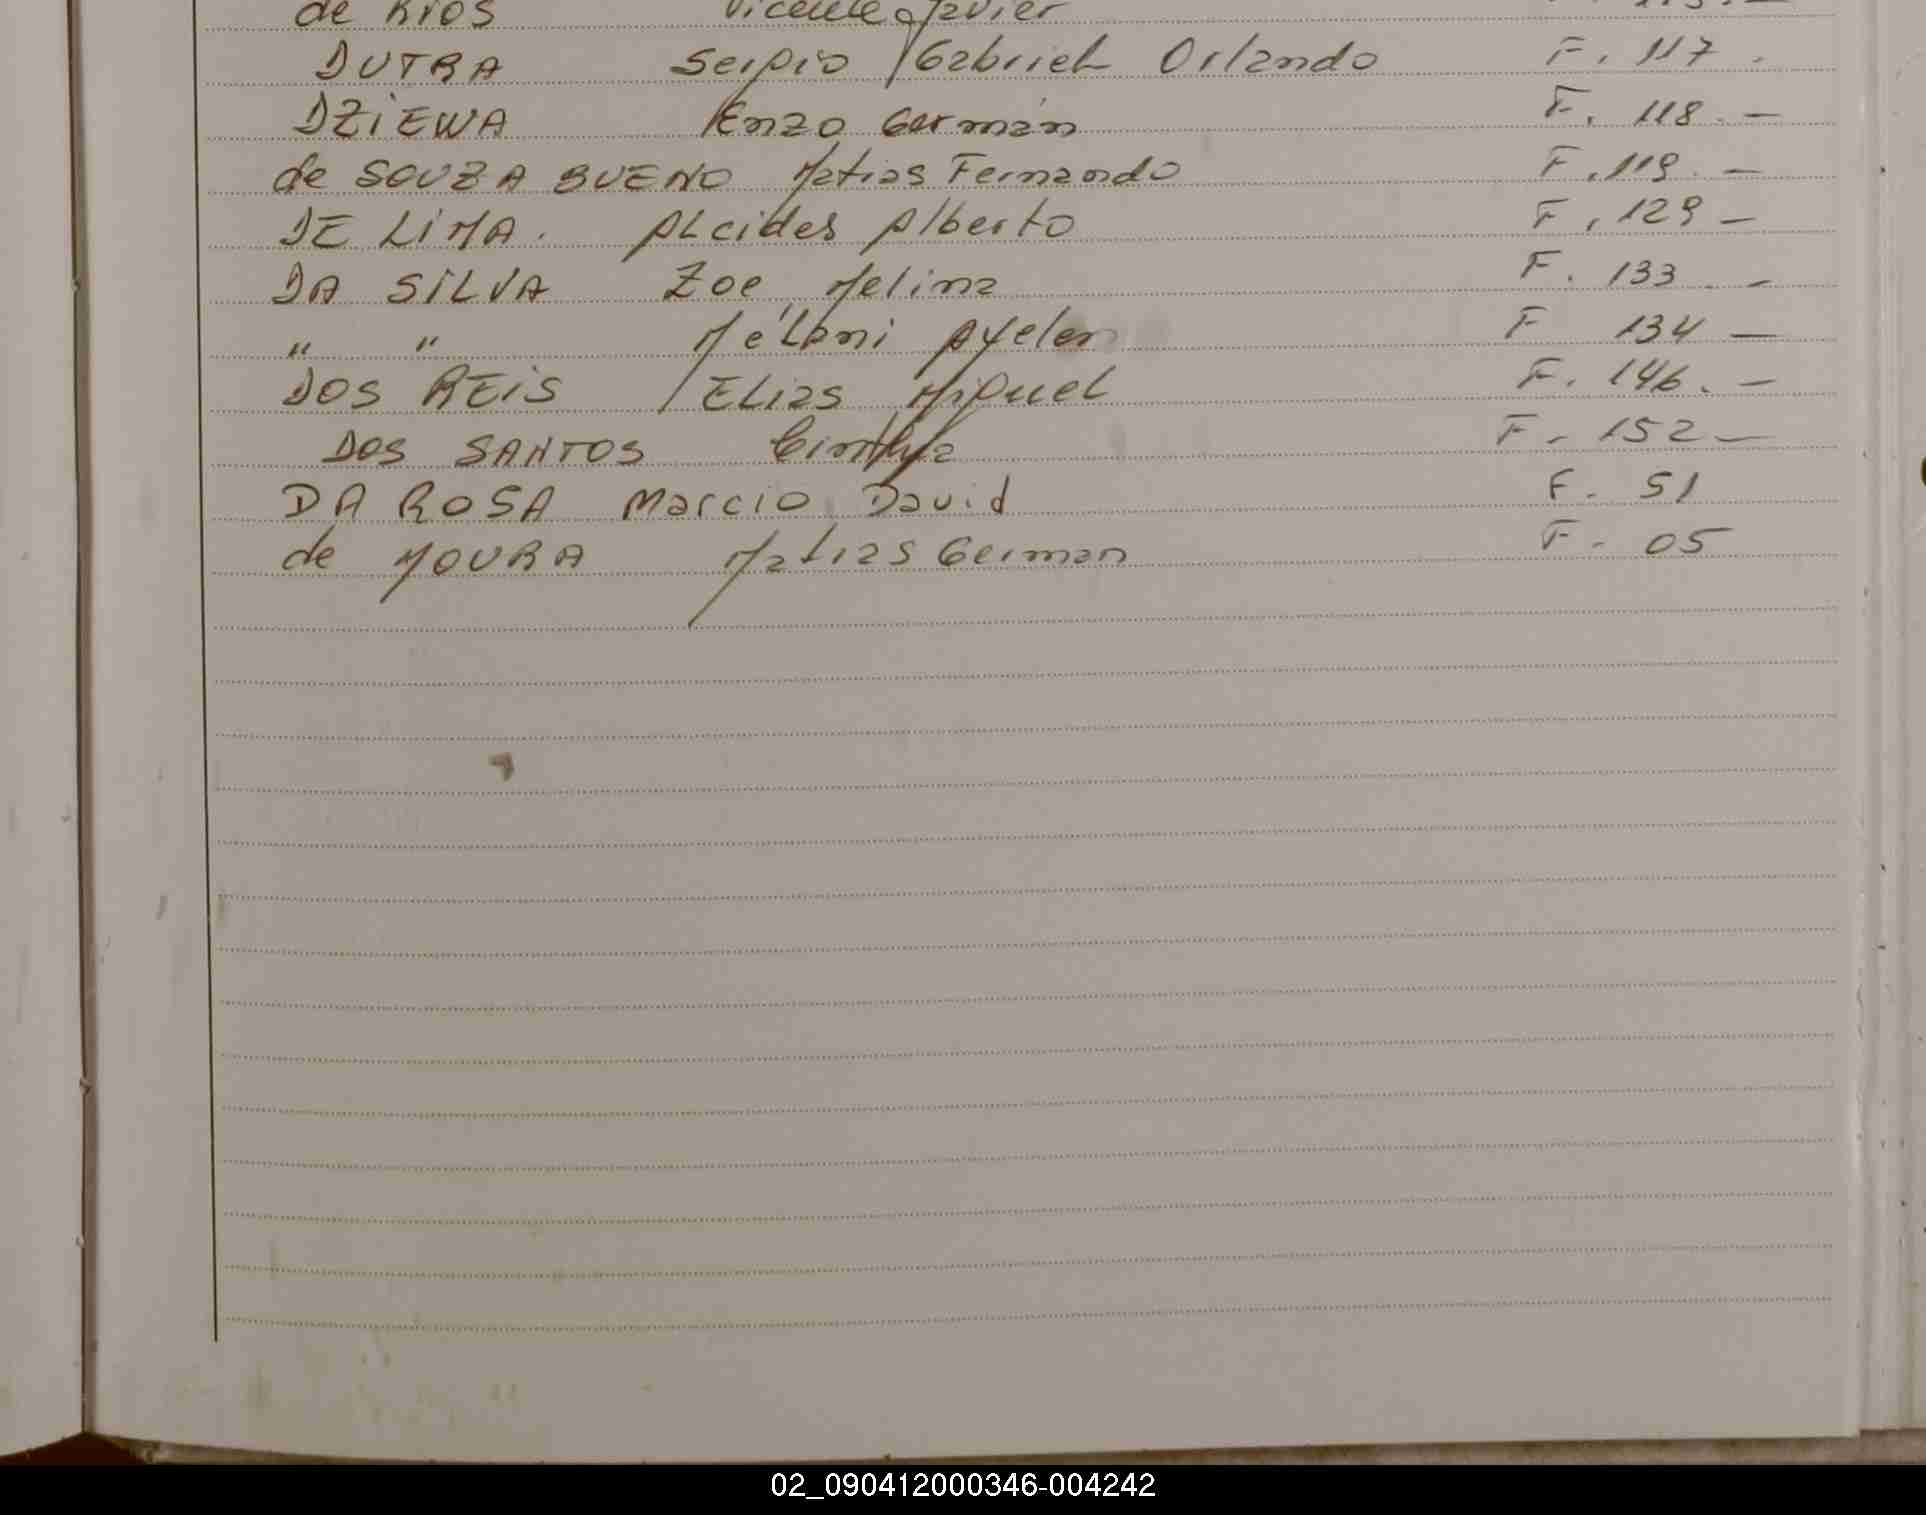 de RIOS Vicente Javier
DUTRA Sergio Gabriel Orlando F. 117.
DZIEWA Enzo Germán F. 118. —
de SOUZA BUENO Matias Fernando F. 119. —
DE LIMA. Alcides Alberto F. 129 —
DA SILVA Zoe Melina F. 133. —
" " Mélani Ayelen F 134 —
DOS REIS Elias Miguel F. 146. —
DOS SANTOS Cinthya F. 152 —
DA ROSA Marcio David F. 51
de MOURA Matias German F. 05
02_090412000346-004242